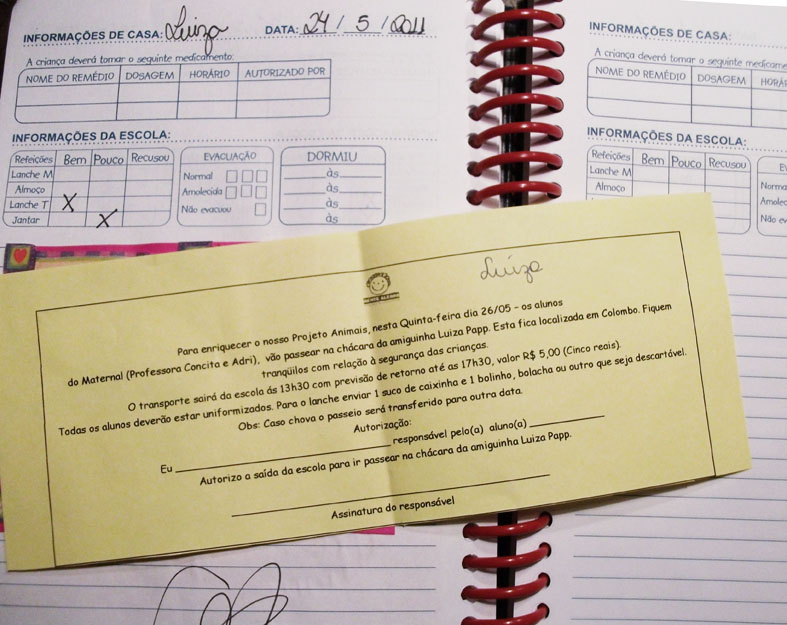 INFORMAÇÕES DE CASA: Luiza DATA: 24 / 5 / 2011
A criança deverá tomar o seguinte medicamento:
NOME DO REMÉDIO DOSAGEM HORÁRIO AUTORIZADO POR
INFORMAÇÕES DA ESCOLA:
Refeições Bem Pouco Recusou
Lanche M
Almoço
Lanche T X
Jantar X
EVACUAÇÃO
Normal
Amolecida
Não evacuou
DORMIU
às
às
às
às
INFORMAÇÕES DE CASA:
A criança deverá tomar o seguinte medicame
NOME DO REMÉDIO DOSAGEM HORÁ
INFORMAÇÕES DA ESCOLA:
Refeições Bem Pouco Recusou
Lanche M
Almoço
Lanche T
Jantar
Ev
Norma
Amolec
Não ev
Luiza
Para enriquecer o nosso Projeto Animais, nesta Quinta-feira dia 26/05 - os alunos
do Maternal (Professora Concita e Adri), vão passear na chácara da amiguinha Luiza Papp. Esta fica localizada em Colombo. Fiquem
tranqüilos com relação à segurança das crianças.
O transporte sairá da escola ás 13h30 com previsão de retorno até as 17h30, valor R$ 5,00 (Cinco reais).
Todas os alunos deverão estar uniformizados. Para o lanche enviar 1 suco de caixinha e 1 bolinho, bolacha ou outro que seja descartável.
Obs: Caso chova o passeio será transferido para outra data.
Autorização:
Eu ______ responsável pelo(a) aluno(a) ______
Autorizo a saída da escola para ir passear na chácara da amiguinha Luiza Papp.
Assinatura do responsável